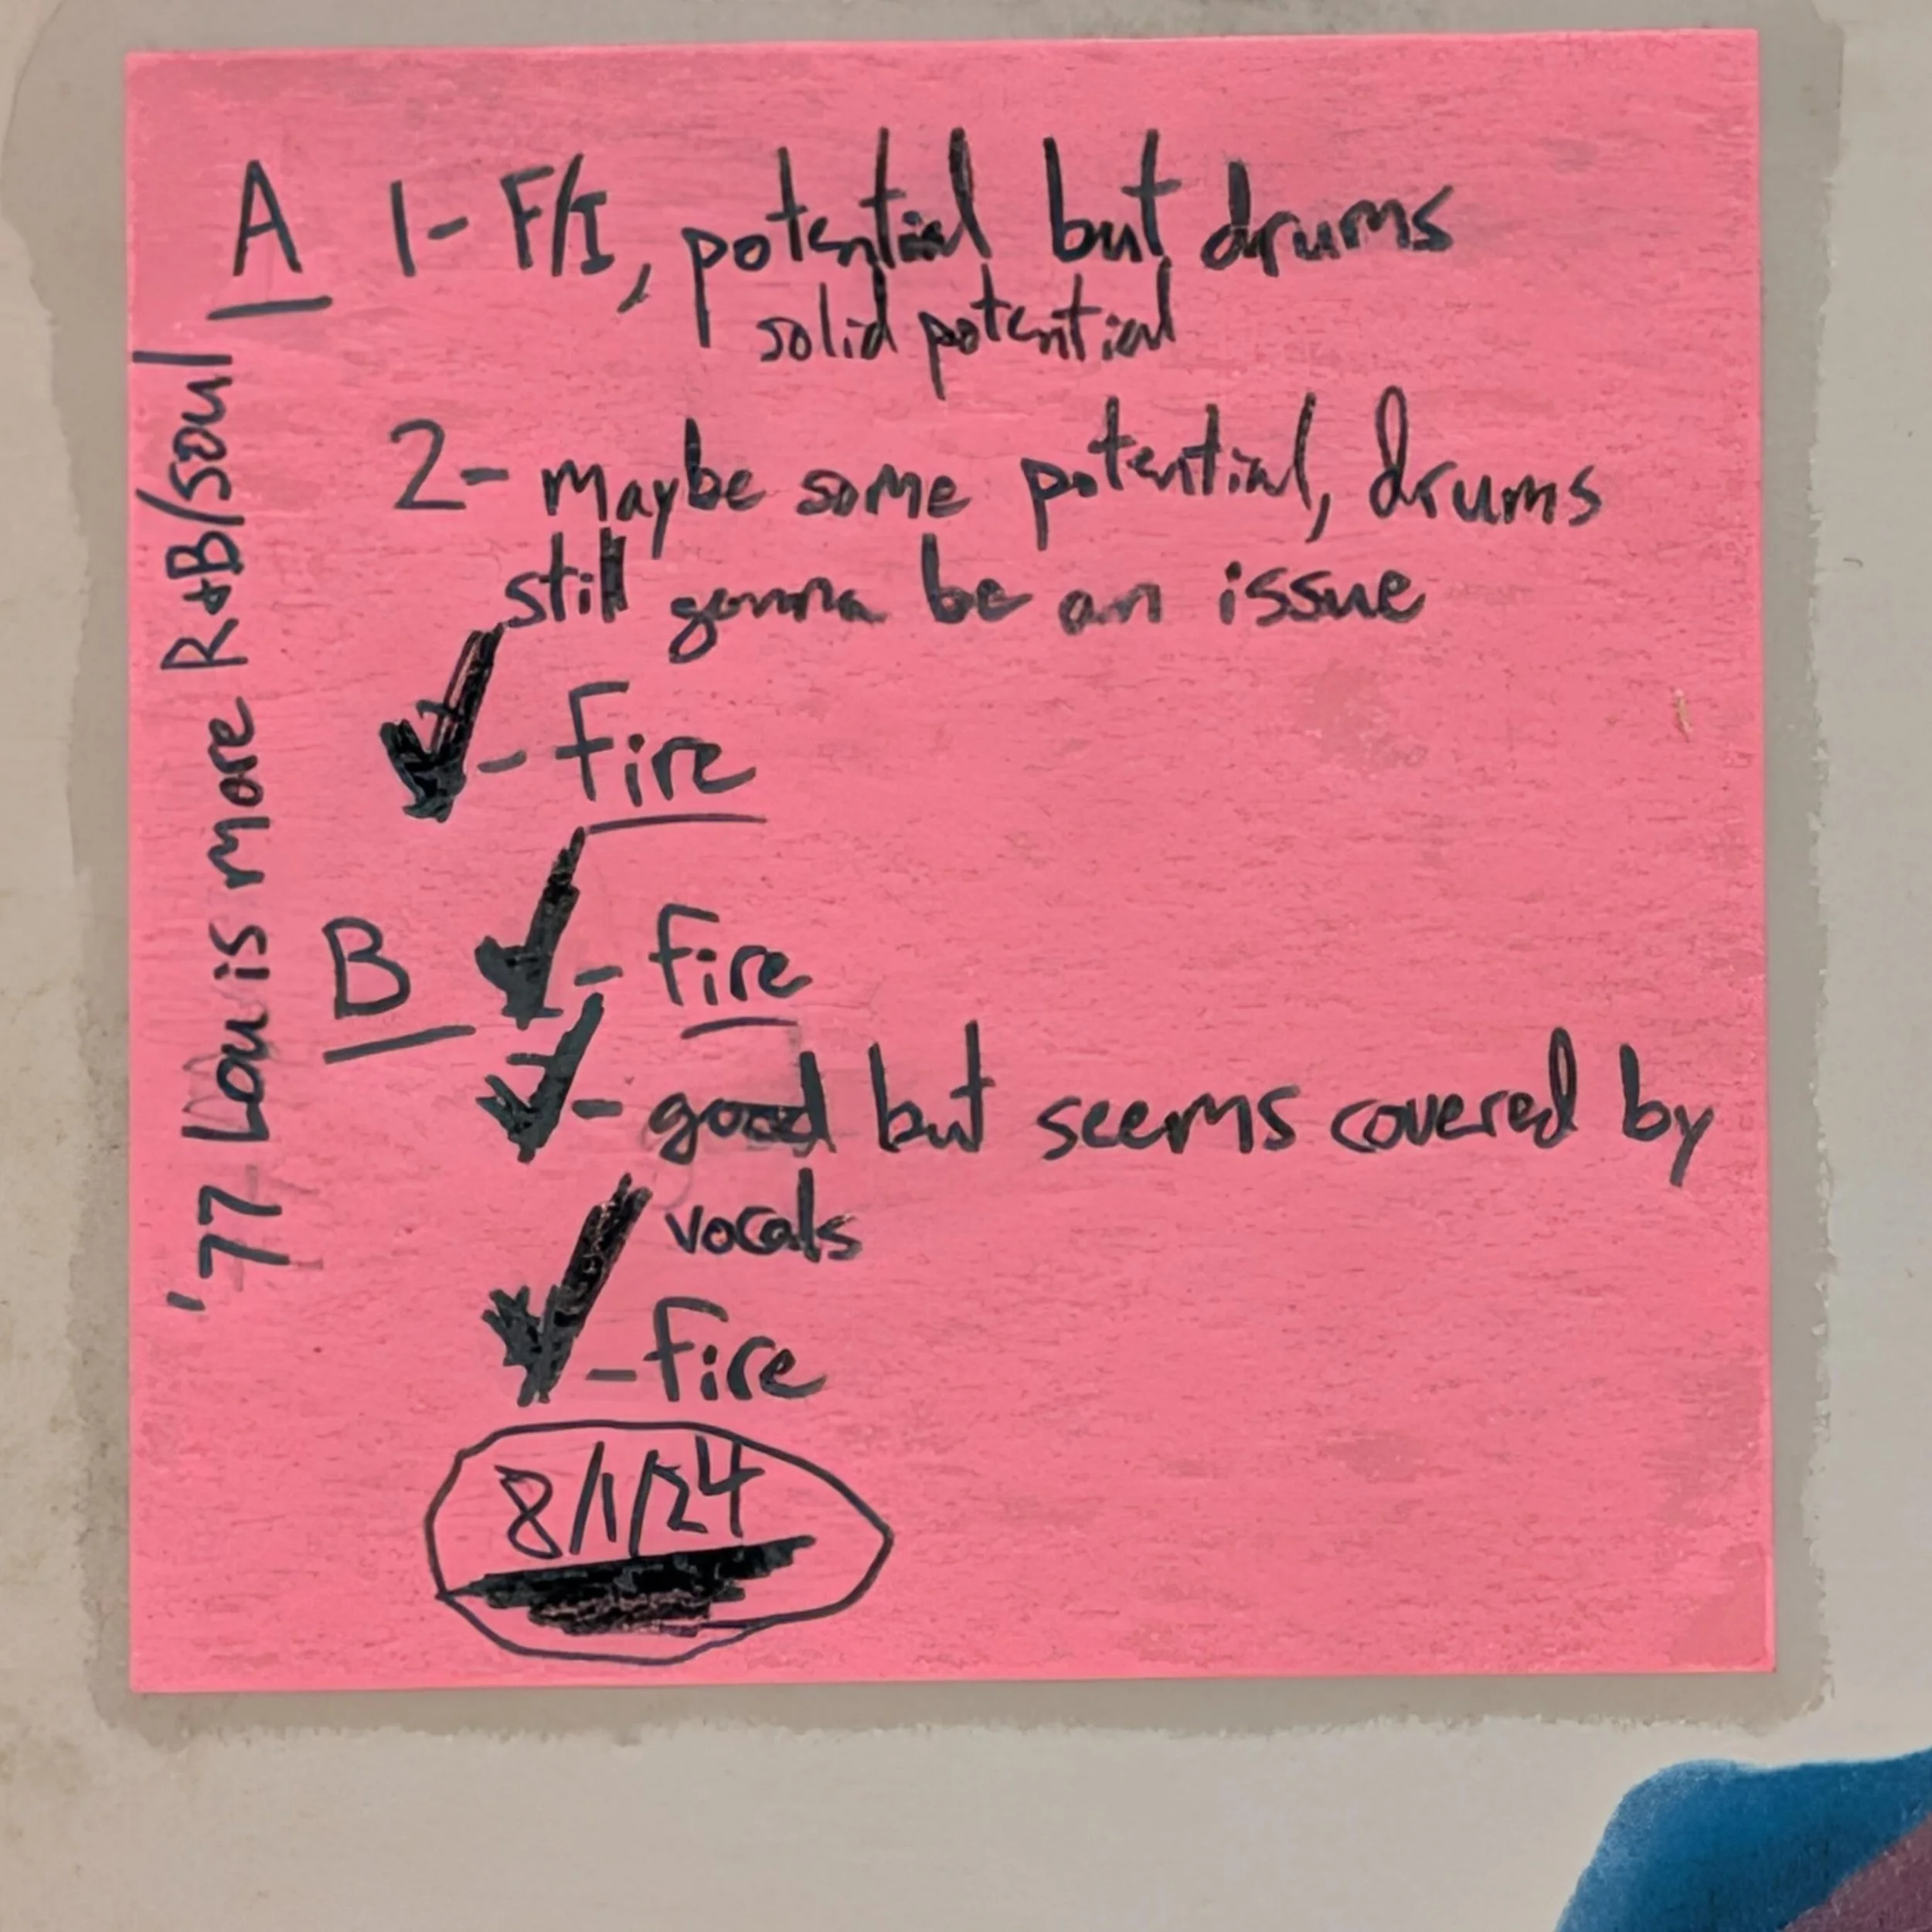 A 1- F/I, potential but drums
solid potential
2- maybe some potential, drums
still gonna be an issue
✓ - Fire
B ✓ - Fire
✓ - good but seems covered by
vocals
✓ - Fire
8/1/24
'77 Louis more R&B/soul